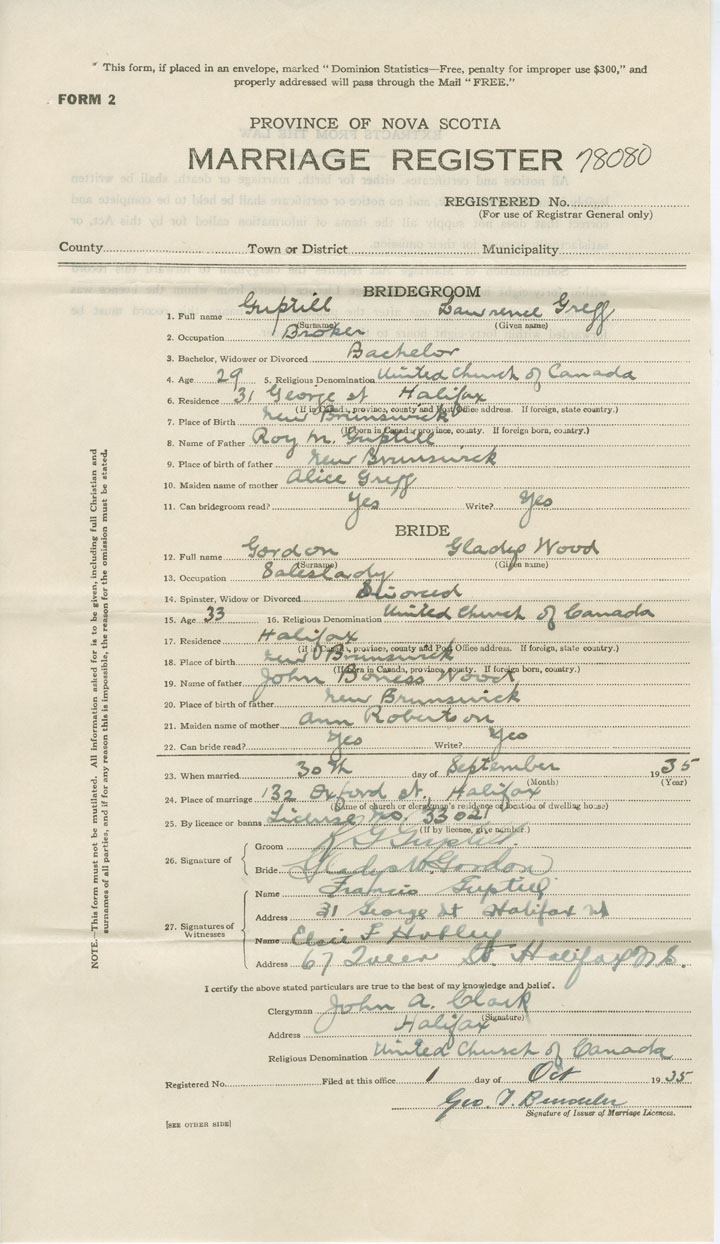 " This form, if placed in an envelope, marked " Dominion Statistics—Free, penalty for improper use $300," and
properly addressed will pass through the Mail " FREE."
FORM 2
PROVINCE OF NOVA SCOTIA
MARRIAGE REGISTER 78080
REGISTERED No.
(For use of Registrar General only)
County Town or District Municipality
BRIDEGROOM
1. Full name Guptill Lawrence Gregg
(Surname) (Given name)
2. Occupation Broker
3. Bachelor, Widower or Divorced Bachelor
4. Age 29 5. Religious Denomination United Church of Canada
6. Residence 31 George St Halifax
(If in Canada, province, county and Post Office address. If foreign, state country.)
7. Place of Birth New Brunswick
(If born in Canada, province, county. If foreign born, country.)
8. Name of Father Roy M. Guptill
9. Place of birth of father New Brunswick
10. Maiden name of mother Alice Gregg
11. Can bridegroom read? Yes Write? Yes
BRIDE
12. Full name Gordon Gladys Wood
(Surname) (Given name)
13. Occupation Saleslady
14. Spinster, Widow or Divorced Divorced
15. Age 33 16. Religious Denomination United Church of Canada
17. Residence Halifax
(If in Canada, province, county and Post Office address. If foreign, state country.)
18. Place of birth New Brunswick
(If born in Canada, province, county. If foreign born, country.)
19. Name of father John Boness Wood
20. Place of birth of father New Brunswick
21. Maiden name of mother Ann Robertson
22. Can bride read? Yes Write? Yes
23. When married 30th day of September 1935
(Month) (Year)
24. Place of marriage 132 Oxford St., Halifax
(Name of church or clergyman's residence or location of dwelling house)
25. By licence or banns License No. 33021
(If by licence, give number.)
26. Signature of
Groom L G Guptill
Bride Gladys W. Gordon
27. Signatures of Witnesses
Name Francis Guptill
Address 31 George St Halifax NS
Name Elsie F
Address 67 St. Halifax N.S.
I certify the above stated particulars are true to the best of my knowledge and belief.
Clergyman John A. Clark
(Signature)
Address Halifax
Religious Denomination United Church of Canada
Registered No. Filed at this office 1 day of Oct 1935
Geo. T.
Signature of Issuer of Marriage Licences.
[SEE OTHER SIDE]
NOTE.—This form must not be mutilated. All information asked for is to be given, including full Christian and
surnames of all parties, and if for any reason this is impossible, the reason for the omission must be stated.